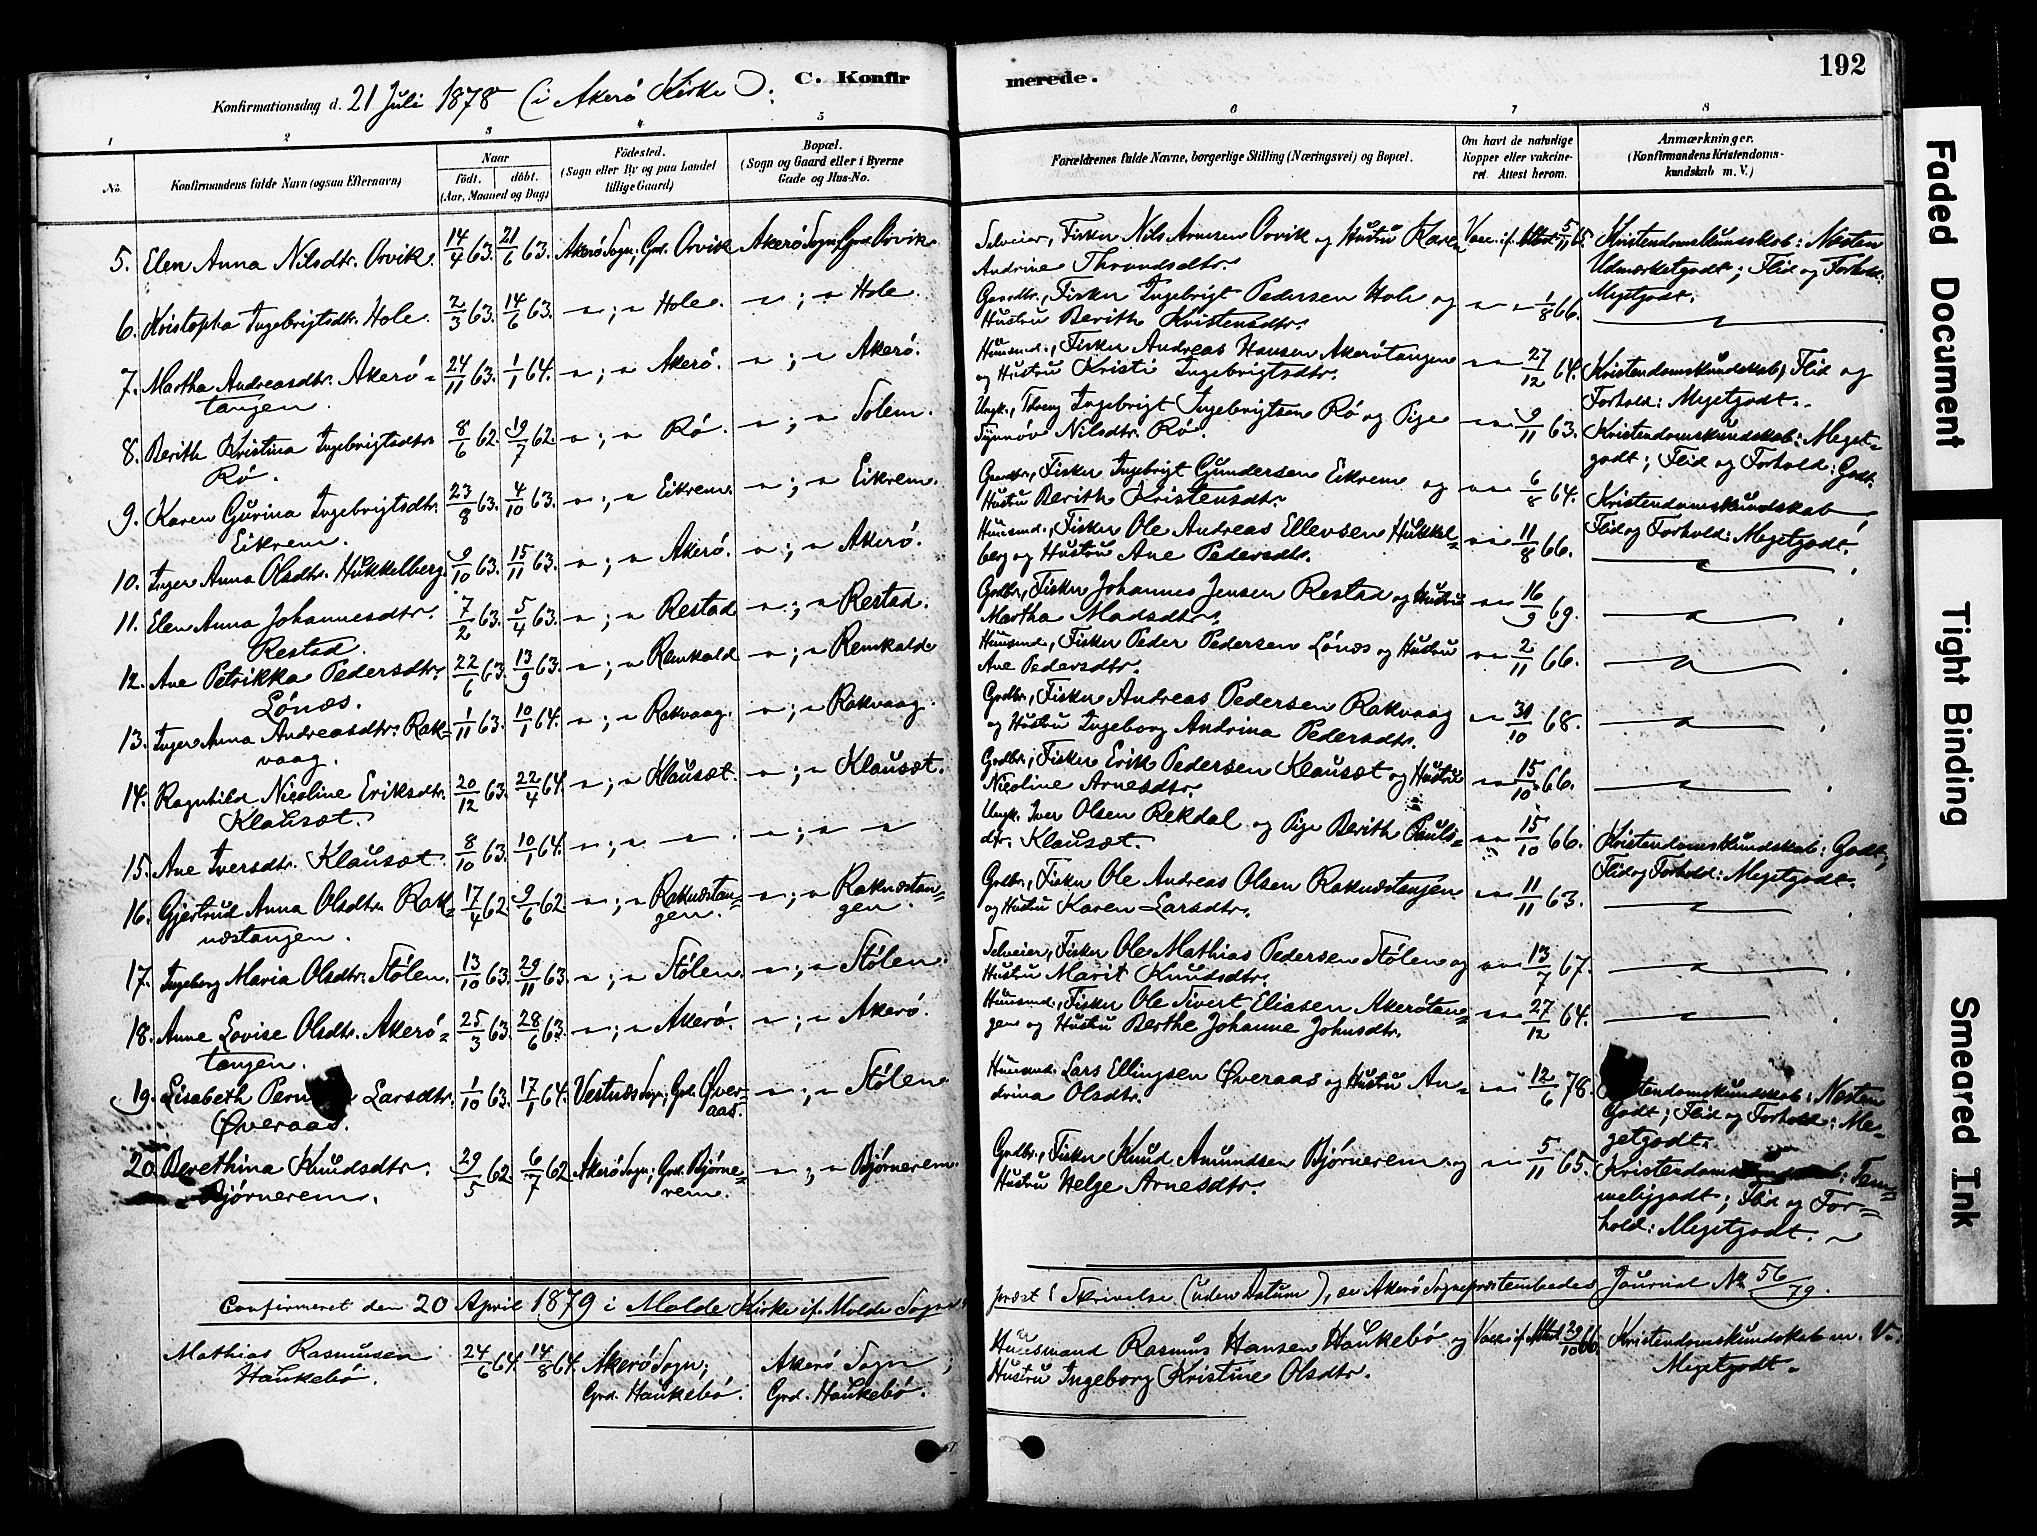 C. Konfirmerede.
192
Konfirmationsdag d. 21 Juli 1878 (i Akerö Kirke).
1 2 3 4 5 6 7 8
No.
Konfirmandens fulde Navn (ogsaa Efternavn)
Naar
født. døbt.
(Aar, Maaned og Dag)
Fødested.
(Sogn eller By og paa Landet
tillige Gaard)
Bopæl.
(Sogn og Gaard eller i Byerne
Gade og Hus-No.
Forældrenes fulde Navne, borgerlige Stilling (Næringsvei) og Bopæl.
Om havt de naturlige
Kopper eller vakcine-
ret. Attest herom.
Anmærkninger.
(Konfirmandens Kristendoms-
kundskab m. V.)
5. Elen Anna Nilsdtr. Orvik. 14/4 63. 21/6 63. Akerö Sogn; Grd. Orvik Akerö Sogn; Grd. Orvik. Selveier, Fisker Nils Arnesen Orvik og Hustru Karen Vacc. if. Attest 5/11 65. Kristendomskundskab: Næsten
Andrine Throndsdtr. Udmærketgodt; Flid og Forhold:
Megetgodt.
6. Kristopha Ingebrigtsdtr. Hole. 2/3 63. 14/6 63. " ; " Hole. " ; " Hole. Gaardbr., Fisker Ingebrigt Pedersen Hole og " " 1/8 66.
Hustru Berith Kristensdtr.
7. Martha Andreasdtr. Akerö- 24/11 63. 1/1 64. " ; " Akerö. " ; " Akerö. Huusmd., Fisker Andreas Hansen Akerötangen " " 27/12 64. Kristendomskundskab, Flid og
tangen. og Hustru Kristi Ingebrigtsdtr. Forhold: Megetgodt.
8. Berith Kristina Ingebrigtsdtr. 8/6 62. 19/7 62. " ; " Rö. " ; " Solem. Ungk., Dreng Ingebrigt Ingebrigtsen Rö og Pige " " 9/11 63. Kristendomskundskab: Meget-
Rö. Synnöv Nilsdtr. Rö. godt; Flid og Forhold: Godt.
9. Karen Gurina Ingebrigtsdtr. 23/8 63. 4/10 63. " ; " Eikrem. " ; " Eikrem. Gaardbr., Fisker Ingebrigt Gundersen Eikrem og " " 6/8 64. Kristendomskundskab
Eikrem. Hustru Berith Kristensdtr. Flid og Forhold: Megetgodt.
10. Inger Anna Olsdtr. Hukkelberg. 9/10 63. 15/11 63. " ; " Akerö. " ; " Akerö. Huusmd., Fisker Ole Andreas Ellevsen Hukkel- " " 11/8 66.
berg og Hustru Ane Pedersdtr.
11. Elen Anna Johannesdtr. 7/2 63. 5/4 63. " ; " Restad " ; " Restad. Gdbr., Fisker Johannes Jensen Restad og Hustru " " 16/9 69.
Restad. Martha Madsdtr.
12. Ane Petrikka Pedersdtr. 22/6 63. 13/9 63. " ; " Remkald " ; " Remkald. Huusmd., Fisker Peder Pedersen Lönæs og Hustru " " 2/11 66.
Lönæs. Ane Pedersdtr.
13. Inger Anna Andreasdtr. Rak- 1/11 63. 10/1 64. " ; " Rakvaag. " ; " Rakvaag. Grdbr., Fisker Andreas Pedersen Rakvaag " " 31/10 68.
vaag. og Hustru Ingeborg Andrina Pedersdtr.
14. Ragnhild Nicoline Eriksdtr. 20/12 63. 22/4 64. " ; " Klausæt. " ; " Klausæt. Grdbr., Fisker Erik Pedersen Klausæt og Hustru " 15/10 66.
Klausæt. Nicoline Arnesdtr.
15. Ane Iversdtr. Klausæt. 8/10 63. 10/1 64. " ; " " " ; " " Ungk. Iver Olsen Rekdal og Pige Berith Pauls- " " 15/10 66. Kristendomskundskab: Godt;
dtr. Klausæt. Flid og Forhold: Megetgodt.
16. Gjertrud Anna Olsdtr. Rak- 17/4 62. 9/6 62. " ; " Raknæstan- " ; " Raknæstan- Grdbr., Fisker Ole Andreas Olsen Raknæstangen " " 11/11 63.
næstangen. gen. gen. og Hustru Karen Larsdtr.
17. Ingeborg Maria Olsdtr. Stölen. 13/10 63. 29/11 63. " ; " Stölen. " ; " Stölen. Selveier, Fisker Ole Mathias Pedersen Stölen og " " 13/7 67.
Hustru Marit Knudsdtr.
18. Anne Lovise Olsdtr. Akerö- 25/3 63. 28/6 63. " ; " Akerö. " ; " Akerö. Huusmd., Fisker Ole Sivert Eliasen Akerötan- " " 27/12 64.
tangen. gen og Hustru Berthe Johanne Johnsdtr.
19. Lisabeth Larsdtr. 1/10 63. 17/1 64. Vestnæs Sogn; Grd. Øver- " ; " Stölen. Huusmd. Lars Ellingsen Øveraas og Hustru An- " " 12/6 78. Kristendomskundskab: Næsten
Øveraas. aas. drina Olsdtr. Godt; Flid og Forhold: Me-
getgodt.
20. Berethina Knudsdtr. 29/5 62. 6/7 62. Akerö Sogn; Grd. Björne- " ; " Björnerem. Grdbr., Fisker Knud Amundsen Björnerem og " " 5/11 65. Kristendomskundskab: Tem-
Björnerem. rem. Hustru Helge Arnesdtr. meliggodt; Flid og For-
hold: Megetgodt.
Confirmeret den 20 April 1879 i Molde Kirke if. Molde Sogne- præst's Skrivelse (uden Datum), se Akerö Sognepræstembedes Journal No 56/79.
Mathias Rasmusen 24/6 64. 14/8 64. Akerö Sogn; Akerö Sogn; Huusmand Rasmus Hansen Haukebö og Vacc. if. Attest 29/10 66. Kristendomskundskab m. V.
Haukebö. Grd. Haukebö. Grd. Haukebö. Hustru Ingeborg Kristine Olsdtr. Megetgodt.
Faded Document
Tight Binding
Smeared Ink